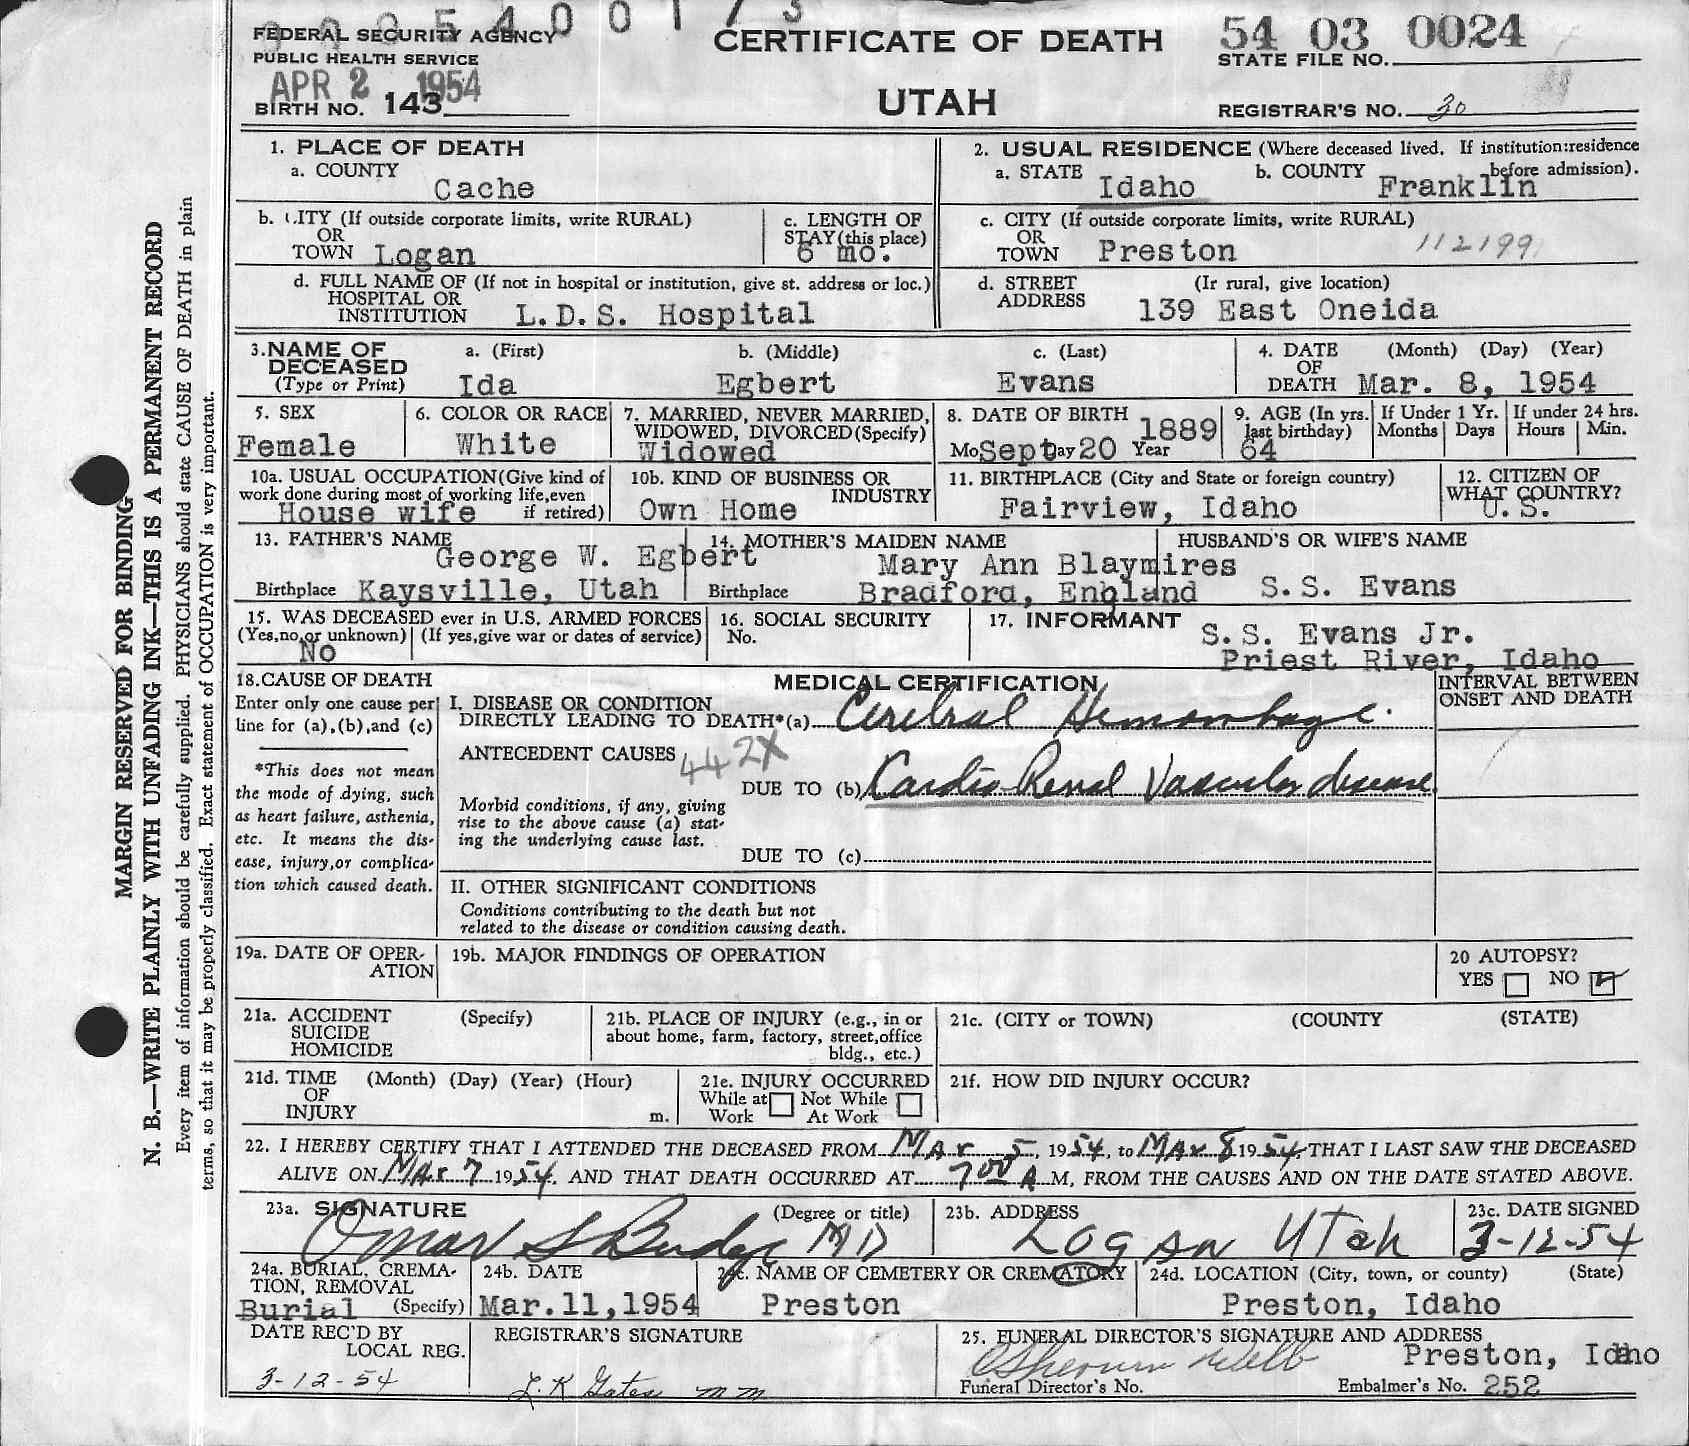 FEDERAL SECURITY AGENCY
PUBLIC HEALTH SERVICE
APR 2 1954
BIRTH NO. 143
CERTIFICATE OF DEATH
UTAH
54 03 0024
STATE FILE NO.
REGISTRAR'S NO. 30
MARGIN RESERVED FOR BINDING
N. B.—WRITE PLAINLY WITH UNFADING INK—THIS IS A PERMANENT RECORD
Every item of information should be carefully supplied. PHYSICIANS should state CAUSE OF DEATH in plain
terms, so that it may be properly classified. Exact statement of OCCUPATION is very important.
1. PLACE OF DEATH
a. COUNTY
Cache
2. USUAL RESIDENCE (Where deceased lived. If institution:residence
before admission).
a. STATE Idaho b. COUNTY Franklin
b. CITY (If outside corporate limits, write RURAL)
OR
TOWN Logan
c. LENGTH OF
STAY (this place)
6 mo.
c. CITY (If outside corporate limits, write RURAL)
OR
TOWN Preston
112199
d. FULL NAME OF (If not in hospital or institution, give st. address or loc.)
HOSPITAL OR
INSTITUTION L.D.S. Hospital
d. STREET (Ir rural, give location)
ADDRESS 139 East Oneida
3. NAME OF
DECEASED
(Type or Print)
a. (First) b. (Middle) c. (Last)
Ida Egbert Evans
4. DATE (Month) (Day) (Year)
OF
DEATH Mar. 8, 1954
5. SEX
Female
6. COLOR OR RACE
White
7. MARRIED, NEVER MARRIED,
WIDOWED, DIVORCED (Specify)
Widowed
8. DATE OF BIRTH 1889
Mo Sept Day 20 Year
9. AGE (In yrs.
last birthday)
64
If Under 1 Yr.
Months Days
If under 24 hrs.
Hours Min.
10a. USUAL OCCUPATION (Give kind of
work done during most of working life, even
if retired)
House wife
10b. KIND OF BUSINESS OR
INDUSTRY
Own Home
11. BIRTHPLACE (City and State or foreign country)
Fairview, Idaho
12. CITIZEN OF
WHAT COUNTRY?
U.S.
13. FATHER'S NAME
George W. Egbert
Birthplace Kaysville, Utah
14. MOTHER'S MAIDEN NAME
Mary Ann Blaymires
Birthplace Bradford, England
HUSBAND'S OR WIFE'S NAME
S.S. Evans
15. WAS DECEASED ever in U.S. ARMED FORCES
(Yes,no,or unknown) (If yes,give war or dates of service)
No
16. SOCIAL SECURITY
No.
17. INFORMANT
S.S. Evans Jr.
Priest River, Idaho
18. CAUSE OF DEATH
Enter only one cause per
line for (a),(b),and (c)
*This does not mean
the mode of dying, such
as heart failure, asthenia,
etc. It means the dis-
ease, injury,or complica-
tion which caused death.
MEDICAL CERTIFICATION
INTERVAL BETWEEN
ONSET AND DEATH
I. DISEASE OR CONDITION
DIRECTLY LEADING TO DEATH*(a) Cerebral Hemorrhage.
ANTECEDENT CAUSES
442X
DUE TO (b) Cardio Renal Vascular disease
Morbid conditions, if any, giving
rise to the above cause (a) stat-
ing the underlying cause last.
DUE TO (c)
II. OTHER SIGNIFICANT CONDITIONS
Conditions contributing to the death but not
related to the disease or condition causing death.
19a. DATE OF OPER-
ATION
19b. MAJOR FINDINGS OF OPERATION
20 AUTOPSY?
YES NO
21a. ACCIDENT (Specify)
SUICIDE
HOMICIDE
21b. PLACE OF INJURY (e.g., in or
about home, farm, factory, street,office
bldg., etc.)
21c. (CITY or TOWN) (COUNTY (STATE)
21d. TIME (Month) (Day) (Year) (Hour)
OF
INJURY m.
21e. INJURY OCCURRED
While at Not While
Work At Work
21f. HOW DID INJURY OCCUR?
22. I HEREBY CERTIFY THAT I ATTENDED THE DECEASED FROM Mar 5, 1954, to Mar 8 1954 THAT I LAST SAW THE DECEASED
ALIVE ON Mar 7 1954, AND THAT DEATH OCCURRED AT 7:00 A M, FROM THE CAUSES AND ON THE DATE STATED ABOVE.
23a. SIGNATURE (Degree or title)
Omar S Budge MD
23b. ADDRESS
Logan Utah
23c. DATE SIGNED
3-12-54
24a. BURIAL, CREMA-
TION, REMOVAL
Burial (Specify)
24b. DATE
Mar.11,1954
24c. NAME OF CEMETERY OR CREMATORY
Preston
24d. LOCATION (City, town, or county) (State)
Preston, Idaho
DATE REC'D BY
LOCAL REG.
3-12-54
REGISTRAR'S SIGNATURE
25. FUNERAL DIRECTOR'S SIGNATURE AND ADDRESS
Preston, Idaho
Funeral Director's No. Embalmer's No. 252